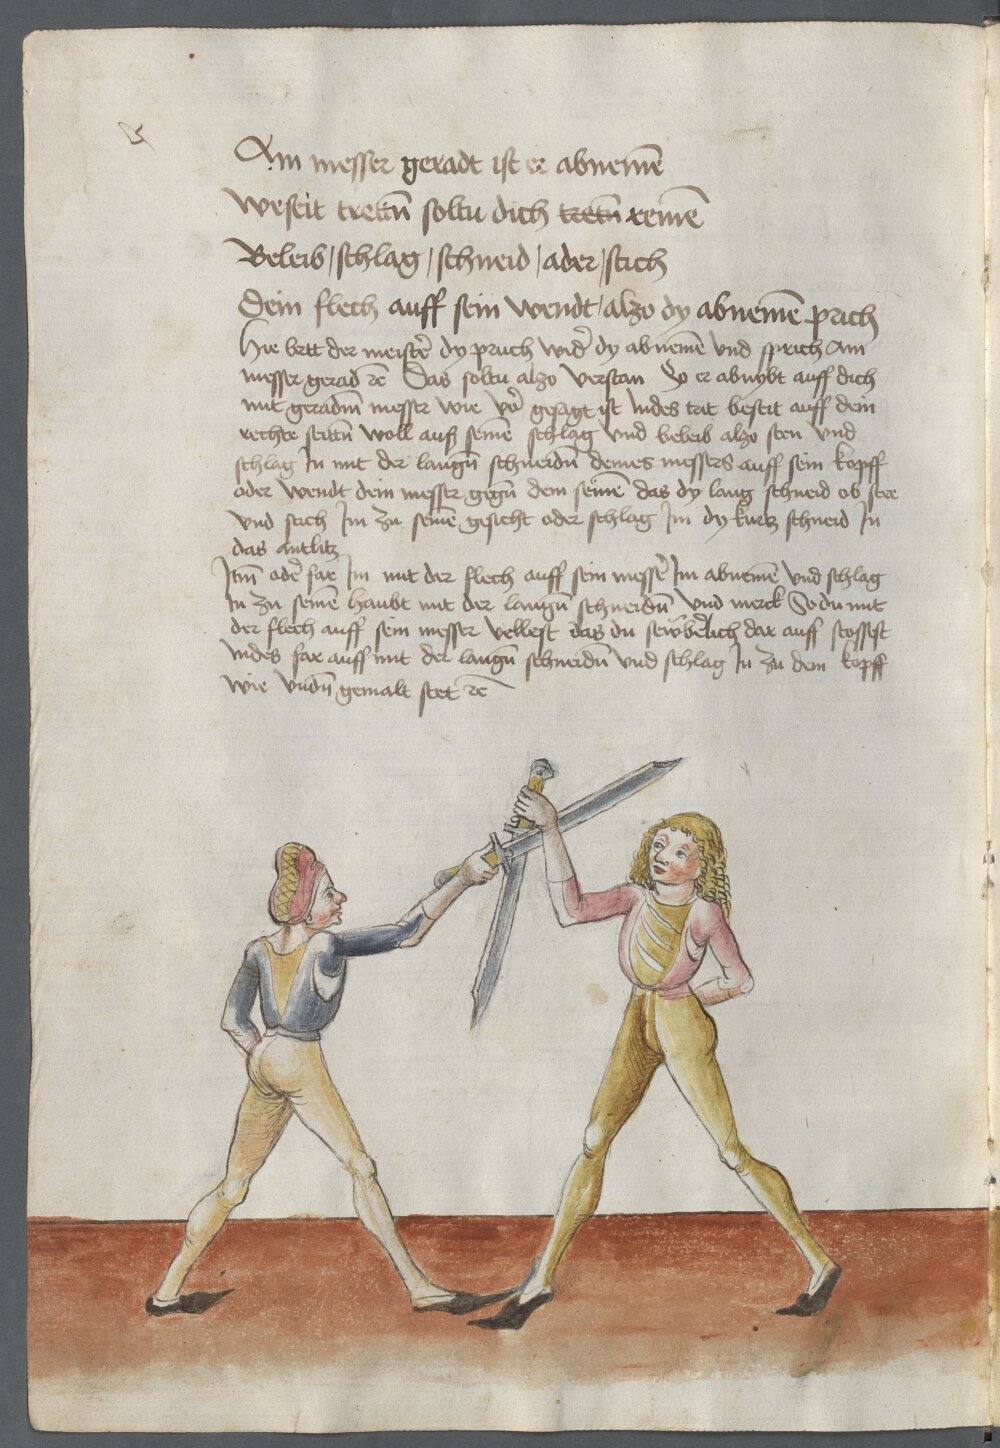 Am messer geradt ist er abnemē
weseit trettn̄ soltu dich tretn̄ remē
Beleib / schlag / schneid / ader / stich
Dein flech auff sein wendt / alzo dy abnemē prich
Hie lert der meistē dy pruch wid̄ dy abnemē vnd sprich Am
messer gerad ꝛc̄ Das soltu alzo verstan So er abnÿbt auff dich
mit geradm̄ messer wie vō gesagt ist Indes trit beseit auff dein
rechte seittn̄ woll auß seinē schlag vnd beleib alzo sten vnd
schlag In mit der langn̄ schneidn̄ deines messers auff sein kopff
oder wendt dein messer gegn̄ dem seinē das dy lang schneid ob stee
vnd stich Im zu seinē gesicht oder schlag Im dy kurtz schneid In
das antlitz
Itm̄ odē far Im mit der flech auff sein messē Im abnemē vnd schlag
In zu seinē haubt mit der langn̄ schneidn̄ vnd merck So du mit
der flech auff sein messer vellest das du dar auff stossest
Indes far auff mit der langn̄ schneidn̄ vnd schlag In zu dem kopff
wie vndn̄ gemalt stet ꝛc̄